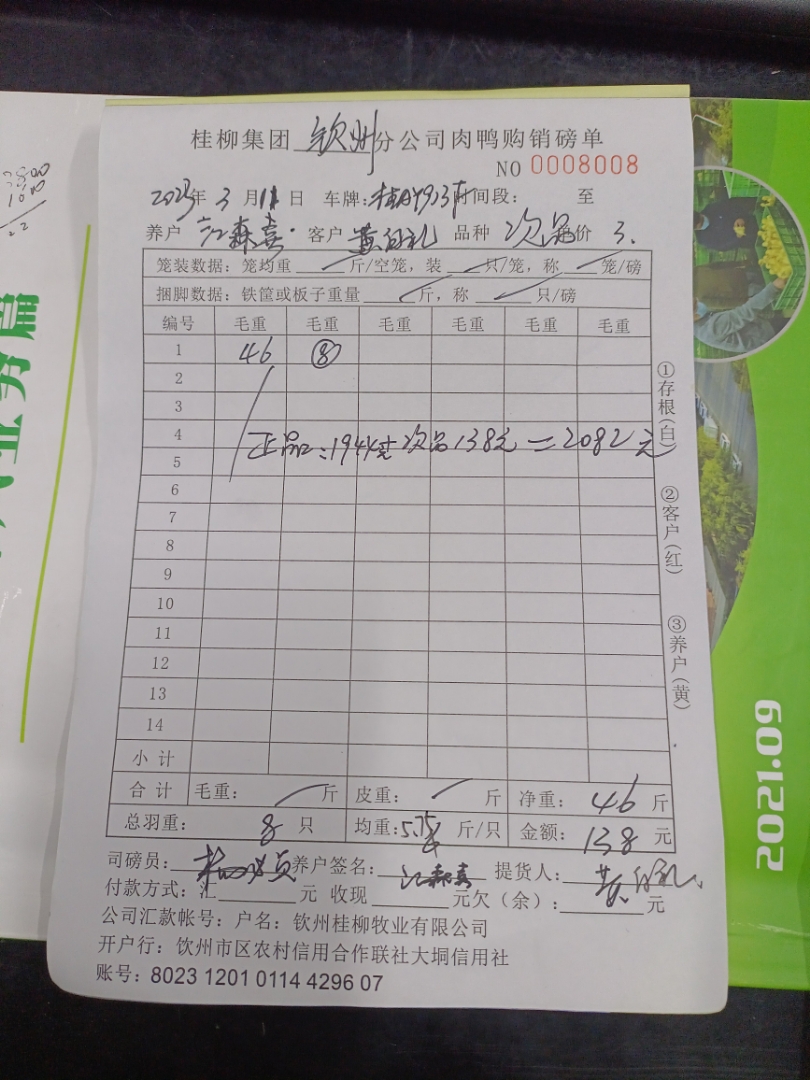 桂柳集团 钦州 分公司肉鸭购销磅单
NO 0008008
2023年 3月11日 车牌: 时间段: 至
养户 江森喜 客户 黄 礼 品种 次品 单价 3.
笼装数据: 笼均重 斤/空笼, 装 只/笼, 称 笼/磅
捆脚数据: 铁筐或板子重量 斤, 称 只/磅
编号 毛重 毛重 毛重 毛重 毛重 毛重
1 46 ⑧
2
3
4
正品:1944元 次品138元=2082元
5
6
7
8
9
10
11
12
13
14
小计
合计 毛重: 斤 皮重: 斤 净重: 46 斤
总羽重: 8 只 均重: 5.75 斤/只 金额: 138 元
司磅员: 养户签名: 江森喜 提货人: 黄 礼
付款方式: 汇 元 收现 元欠(余): 元
公司汇款帐号: 户名: 钦州桂柳牧业有限公司
开户行: 钦州市区农村信用合作联社大垌信用社
账号: 8023 1201 0114 4296 07
①存根(白)
②客户(红)
③养户(黄)
2021.09